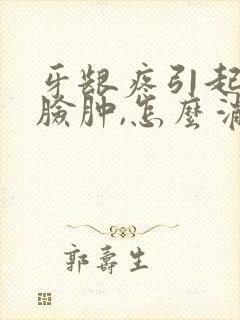 牙龈疼引起
脸肿,怎麼消
郭壽生